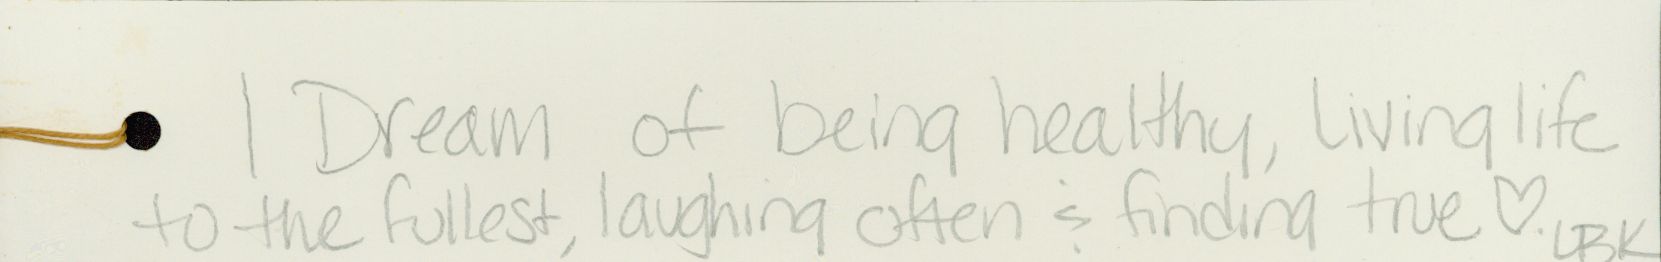 I Dream of being healthy, living life
to the fullest, laughing often & finding true ♡. LBK